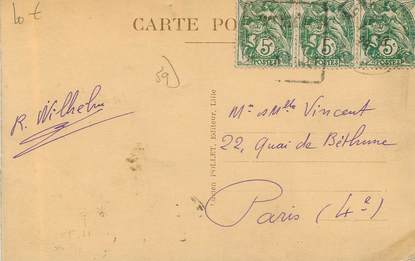 10 €
CARTE PO
59
5c
POSTES
5c
POSTES
5c
POSTES
R. Wilhelm
Lucien POLLET, Editeur, Lille
Mr & Mlle Vincent
22, Quai de Béthune
Paris (4e)